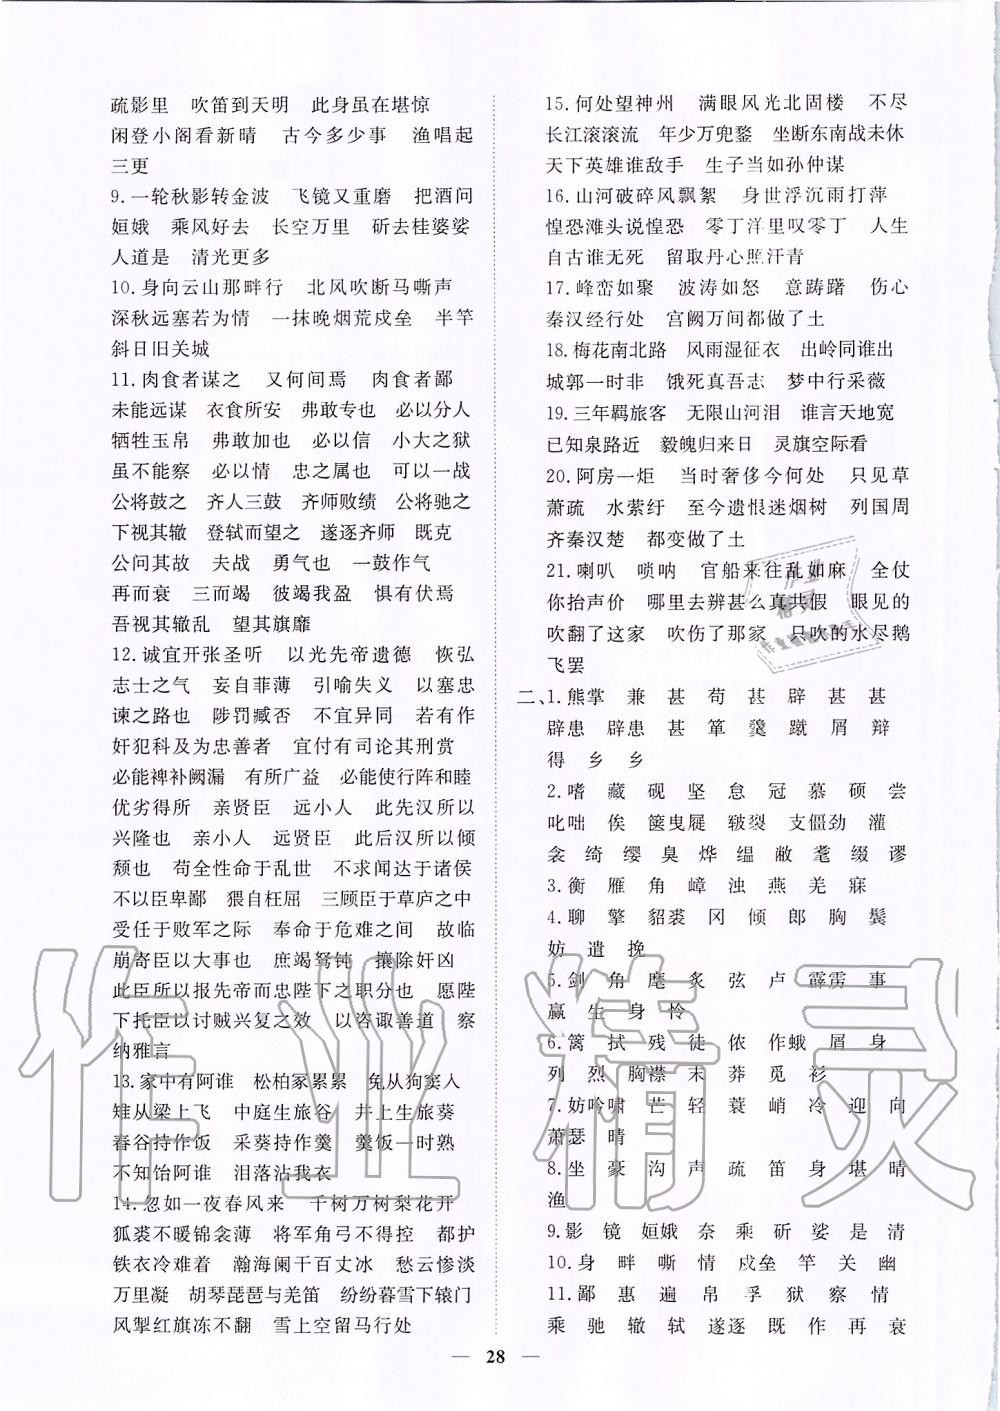 疏影里　吹笛到天明　此身虽在堪惊
闲登小阁看新晴　古今多少事　渔唱起
三更
9.一轮秋影转金波　飞镜又重磨　把酒问
姮娥　乘风好去　长空万里　斫去桂婆娑
人道是　清光更多
10.身向云山那畔行　北风吹断马嘶声
深秋远塞若为情　一抹晚烟荒戍垒　半竿
斜日旧关城
11.肉食者谋之　又何间焉　肉食者鄙
未能远谋　衣食所安　弗敢专也　必以分人
牺牲玉帛　弗敢加也　必以信　小大之狱
虽不能察　必以情　忠之属也　可以一战
公将鼓之　齐人三鼓　齐师败绩　公将驰之
下视其辙　登轼而望之　遂逐齐师　既克
公问其故　夫战　勇气也　一鼓作气
再而衰　三而竭　彼竭我盈　惧有伏焉
吾视其辙乱　望其旗靡
12.诚宜开张圣听　以光先帝遗德　恢弘
志士之气　妄自菲薄　引喻失义　以塞忠
谏之路也　陟罚臧否　不宜异同　若有作
奸犯科及为忠善者　宜付有司论其刑赏
必能裨补阙漏　有所广益　必能使行阵和睦
优劣得所　亲贤臣　远小人　此先汉所以
兴隆也　亲小人　远贤臣　此后汉所以倾
颓也　苟全性命于乱世　不求闻达于诸侯
不以臣卑鄙　猥自枉屈　三顾臣于草庐之中
受任于败军之际　奉命于危难之间　故临
崩寄臣以大事也　庶竭驽钝　攘除奸凶
此臣所以报先帝而忠陛下之职分也　愿陛
下托臣以讨贼兴复之效　以咨诹善道　察
纳雅言
13.家中有阿谁　松柏冢累累　兔从狗窦入
雉从梁上飞　中庭生旅谷　井上生旅葵
舂谷持作饭　采葵持作羹　羹饭一时熟
不知饴阿谁　泪落沾我衣
14.忽如一夜春风来　千树万树梨花开
狐裘不暖锦衾薄　将军角弓不得控　都护
铁衣冷难着　瀚海阑干百丈冰　愁云惨淡
万里凝　胡琴琵琶与羌笛　纷纷暮雪下辕门
风掣红旗冻不翻　雪上空留马行处
15.何处望神州　满眼风光北固楼　不尽
长江滚滚流　年少万兜鍪　坐断东南战未休
天下英雄谁敌手　生子当如孙仲谋
16.山河破碎风飘絮　身世浮沉雨打萍
惶恐滩头说惶恐　零丁洋里叹零丁　人生
自古谁无死　留取丹心照汗青
17.峰峦如聚　波涛如怒　意踌躇　伤心
秦汉经行处　宫阙万间都做了土
18.梅花南北路　风雨湿征衣　出岭同谁出
城郭一时非　饿死真吾志　梦中行采薇
19.三年羁旅客　无限山河泪　谁言天地宽
已知泉路近　毅魄归来日　灵旗空际看
20.阿房一炬　当时奢侈今何处　只见草
萧疏　水萦纡　至今遗恨迷烟树　列国周
齐秦汉楚　都变做了土
21.喇叭　唢呐　官船来往乱如麻　全仗
你抬声价　哪里去辨甚么真共假　眼见的
吹翻了这家　吹伤了那家　只吹的水尽鹅
飞罢
二、1.熊掌　兼　甚　苟　甚　辟　甚　甚
辟患　辟患　甚　箪　羹　蹴　屑　辩
得　乡　乡
2.嗜　藏　砚　坚　怠　冠　慕　硕　尝
叱咄　俟　箧曳屣　皲裂　支僵劲　灌
衾　绮　缨　臭　烨　缊　敝　耄　缀　谬
3.衡　雁　角　嶂　浊　燕　羌　寐
4.聊　擎　貂裘　冈　倾　郎　胸　鬓
妨　遣　挽
5.剑　角　麾　炙　弦　卢　霹雳　事
赢　生　身　怜
6.篱　拭　残　徒　侬　作蛾　屑　身
列　烈　胸襟　末　莽　觅　衫
7.妨吟啸　芒　轻　蓑　峭　冷　迎　向
萧瑟　晴
8.坐　豪　沟　声　疏　笛　身　堪　晴
渔
9.影　镜　姮娥　奈　乘　斫　娑　是　清
10.身　畔　嘶　情　戍垒　竿　关　幽
11.鄙　惠　遍　帛　孚　狱　察　情
乘　驰　辙　轼　遂逐　既　作　再　衰
28
作业精灵